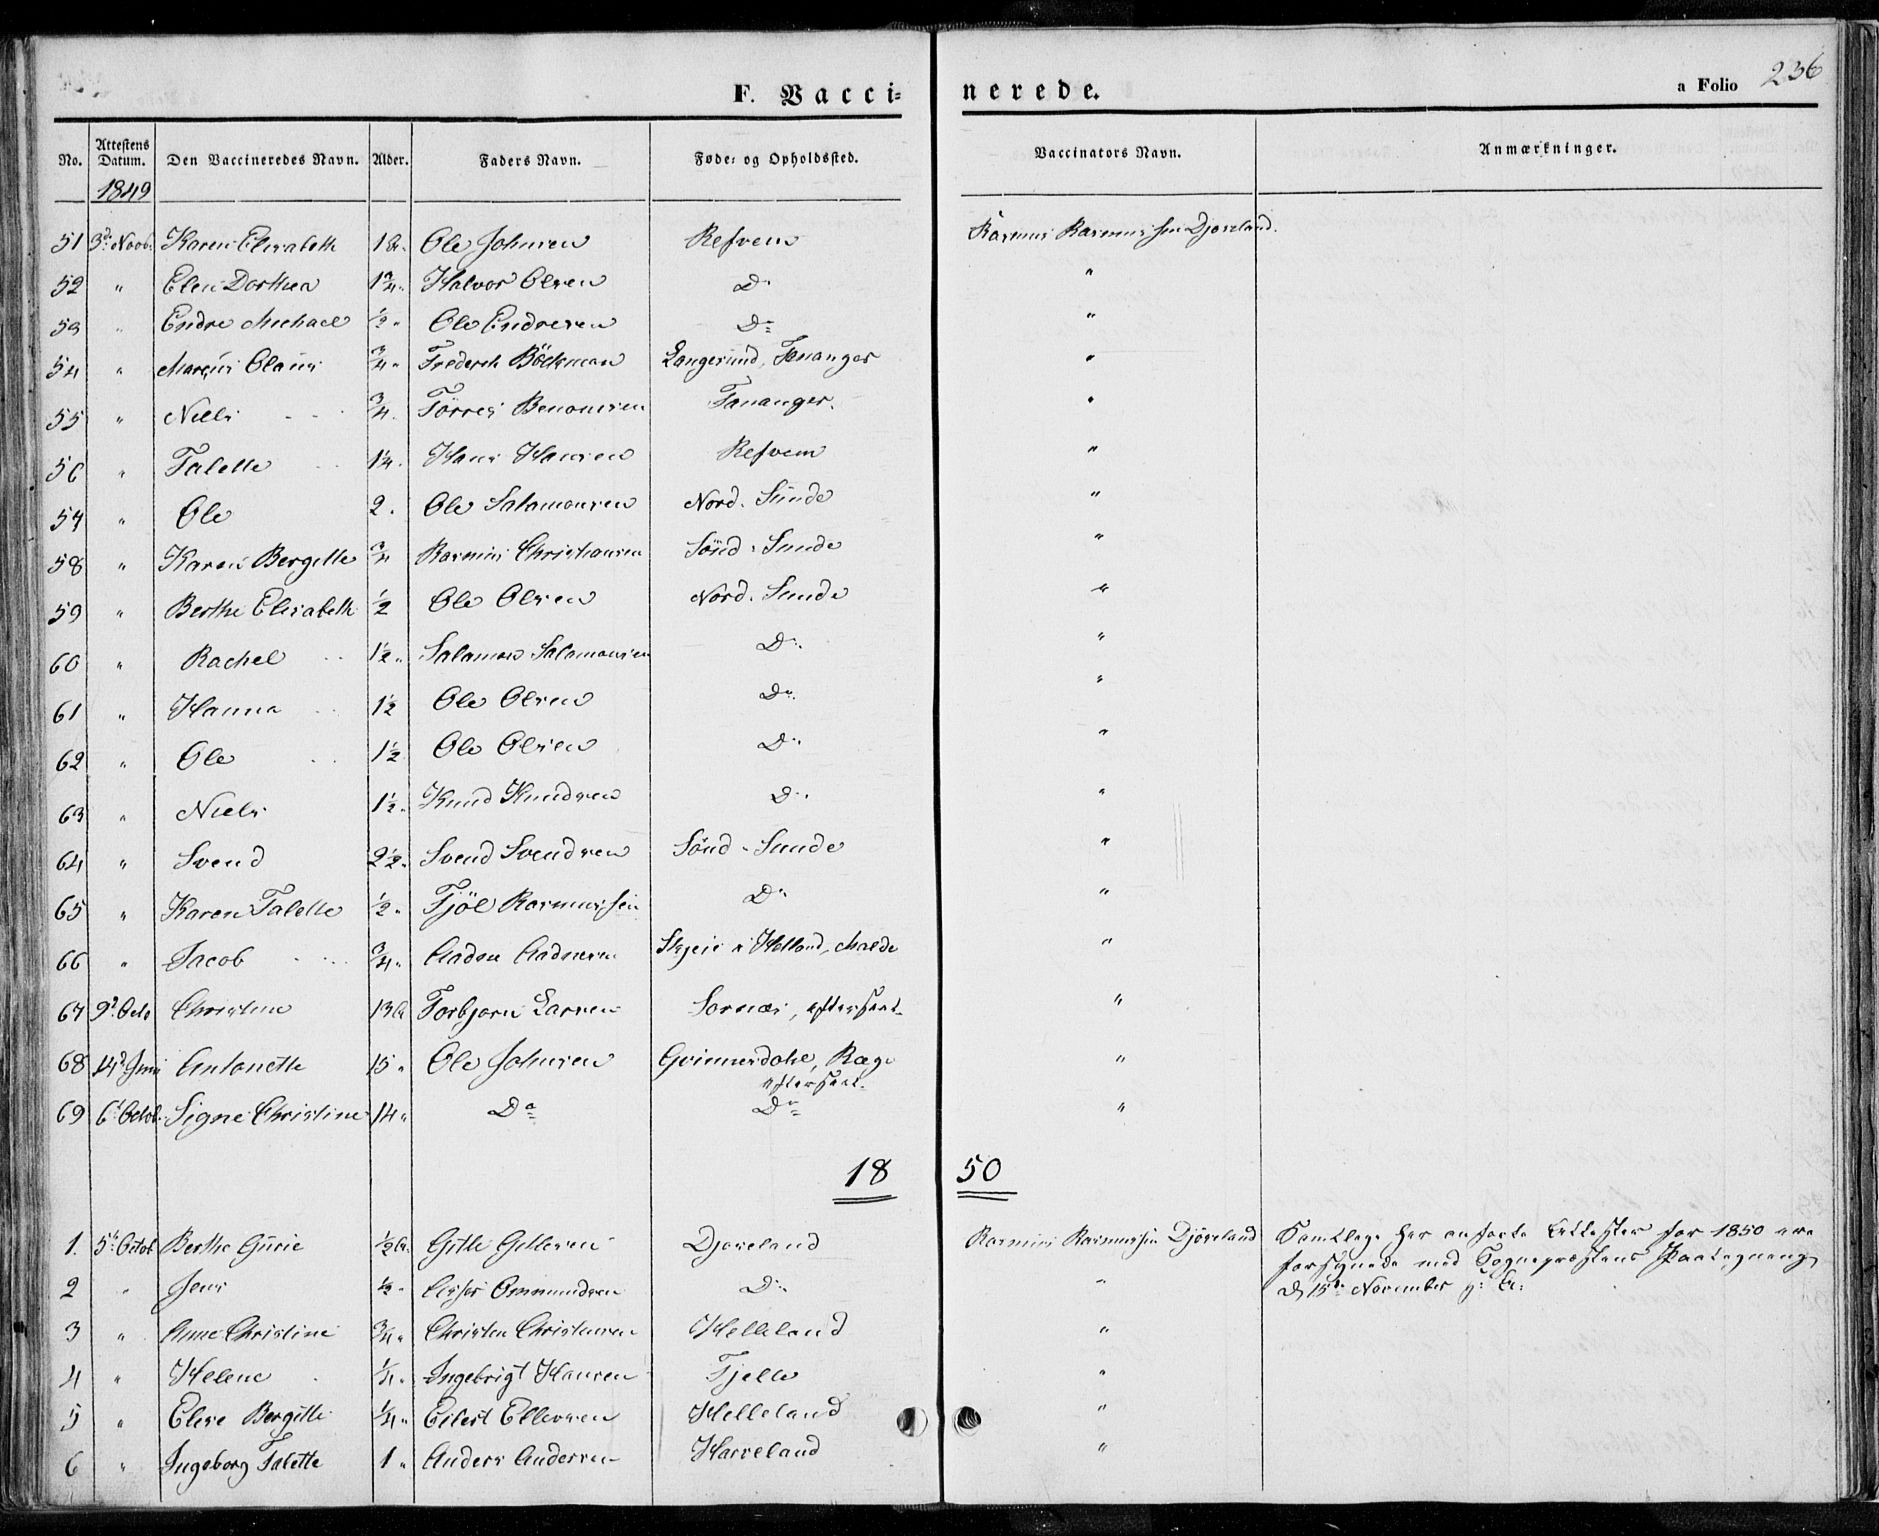 F. Vacci=
nerede.
a Folio 236
No. Attestens Datum. Den Vaccineredes Navn. Alder. Faders Navn. Føde= og Opholdssted. Vaccinators Navn. Anmærkninger.
1849
51 3d Novb. Karen Elisabeth 1 Ole Johnsen Refvem Rasmus Rasmussen Djøseland.
52 " Elen Dorthea 1 3/4 " Halvor Olsen Do "
53 " Endre Michael 1/2 " Ole Endresen Do "
54 " Marcus Claus 3/4 " Frederik Böckman Langesund, Tananger "
55 " Niels 3/4 Törres Benomsen Tananger. "
56 " Talette 1 1/4 Hans Hansen Refvem "
57 " Ole 2. Ole Salamonsen Nord. Sunde "
58 " Karen Bergitte 3/4 Rasmus Christiansen Sönd. Sunde "
59 " Berthe Elisabeth 1/2 Ole Olsen Nord. Sunde "
60 " Rachel 1 1/2 " Salamon Salamonsen Do "
61 " Hanna 1 1/2 Ole Olsen Do "
62 " Ole 1 1/2 Ole Olsen Do "
63 " Niels 1 1/2 " Knud Knudsen Do "
64 " Svend 2 1/2 " Svend Svendsen Sönd. Sunde "
65 " Karen Talette 1/2 " Tjöl Rasmussen Do "
66 " Jacob 3/4 " Aadne Aadnesen Skjeie i Helland, Malde "
67 9d Octo Christine 13 Torbjorn Larsen Sornæs, eftersat. "
68 14d Juni Antonette 15 " Ole Johnsen Gvinnesdahl, Ræge "
eftersat.
69 6t Octob. Signe Christine 14 " Do Do "
18 50
1. 5t Octob Berthe Gurie 1/2 Gitle Gitlesen Djøseland Rasmus Rasmussen Djöseland Samtlige her anförte Attester for 1850 ere
forsynede med Sognepræstens Paategning
2 " Jens 1/2 " Asser Ommundsen Do " d 15de November
3 " Anne Christine 3/4 " Christen Christensen Helleland "
4 " Helene 1/4 " Ingebrigt Hansen Tjelle "
5 " Elise Bergitte 1/4 " Eilert Ellevsen Helleland "
6 " Ingeborg Talette 1 " Anders Andersen Harreland "